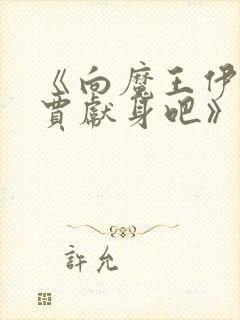 《向魔王伊
賈獻身吧》
許允